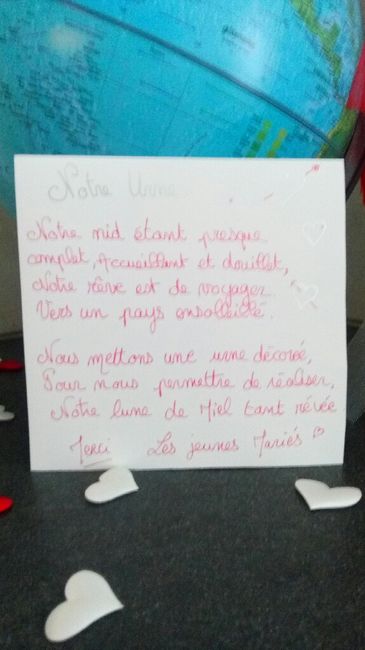 Notre Urne
Notre nid étant presque
complet, Accueillant et douillet,
Notre rêve est de voyager
Vers un pays ensolleillé.
Nous mettons une urne décorée,
Pour nous permettre de réaliser,
Notre lune de Miel tant rêvée
Merci Les jeunes Mariés